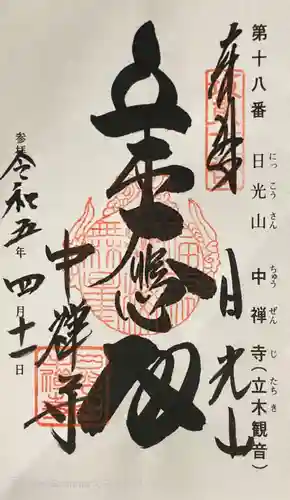 第十八番 日光山 中禅寺(立木観音)
にっこうさん ちゅうぜんじ たちき
奉拝
日光山
立木大悲殿
中禅寺
参拝 令和五年四月十一日